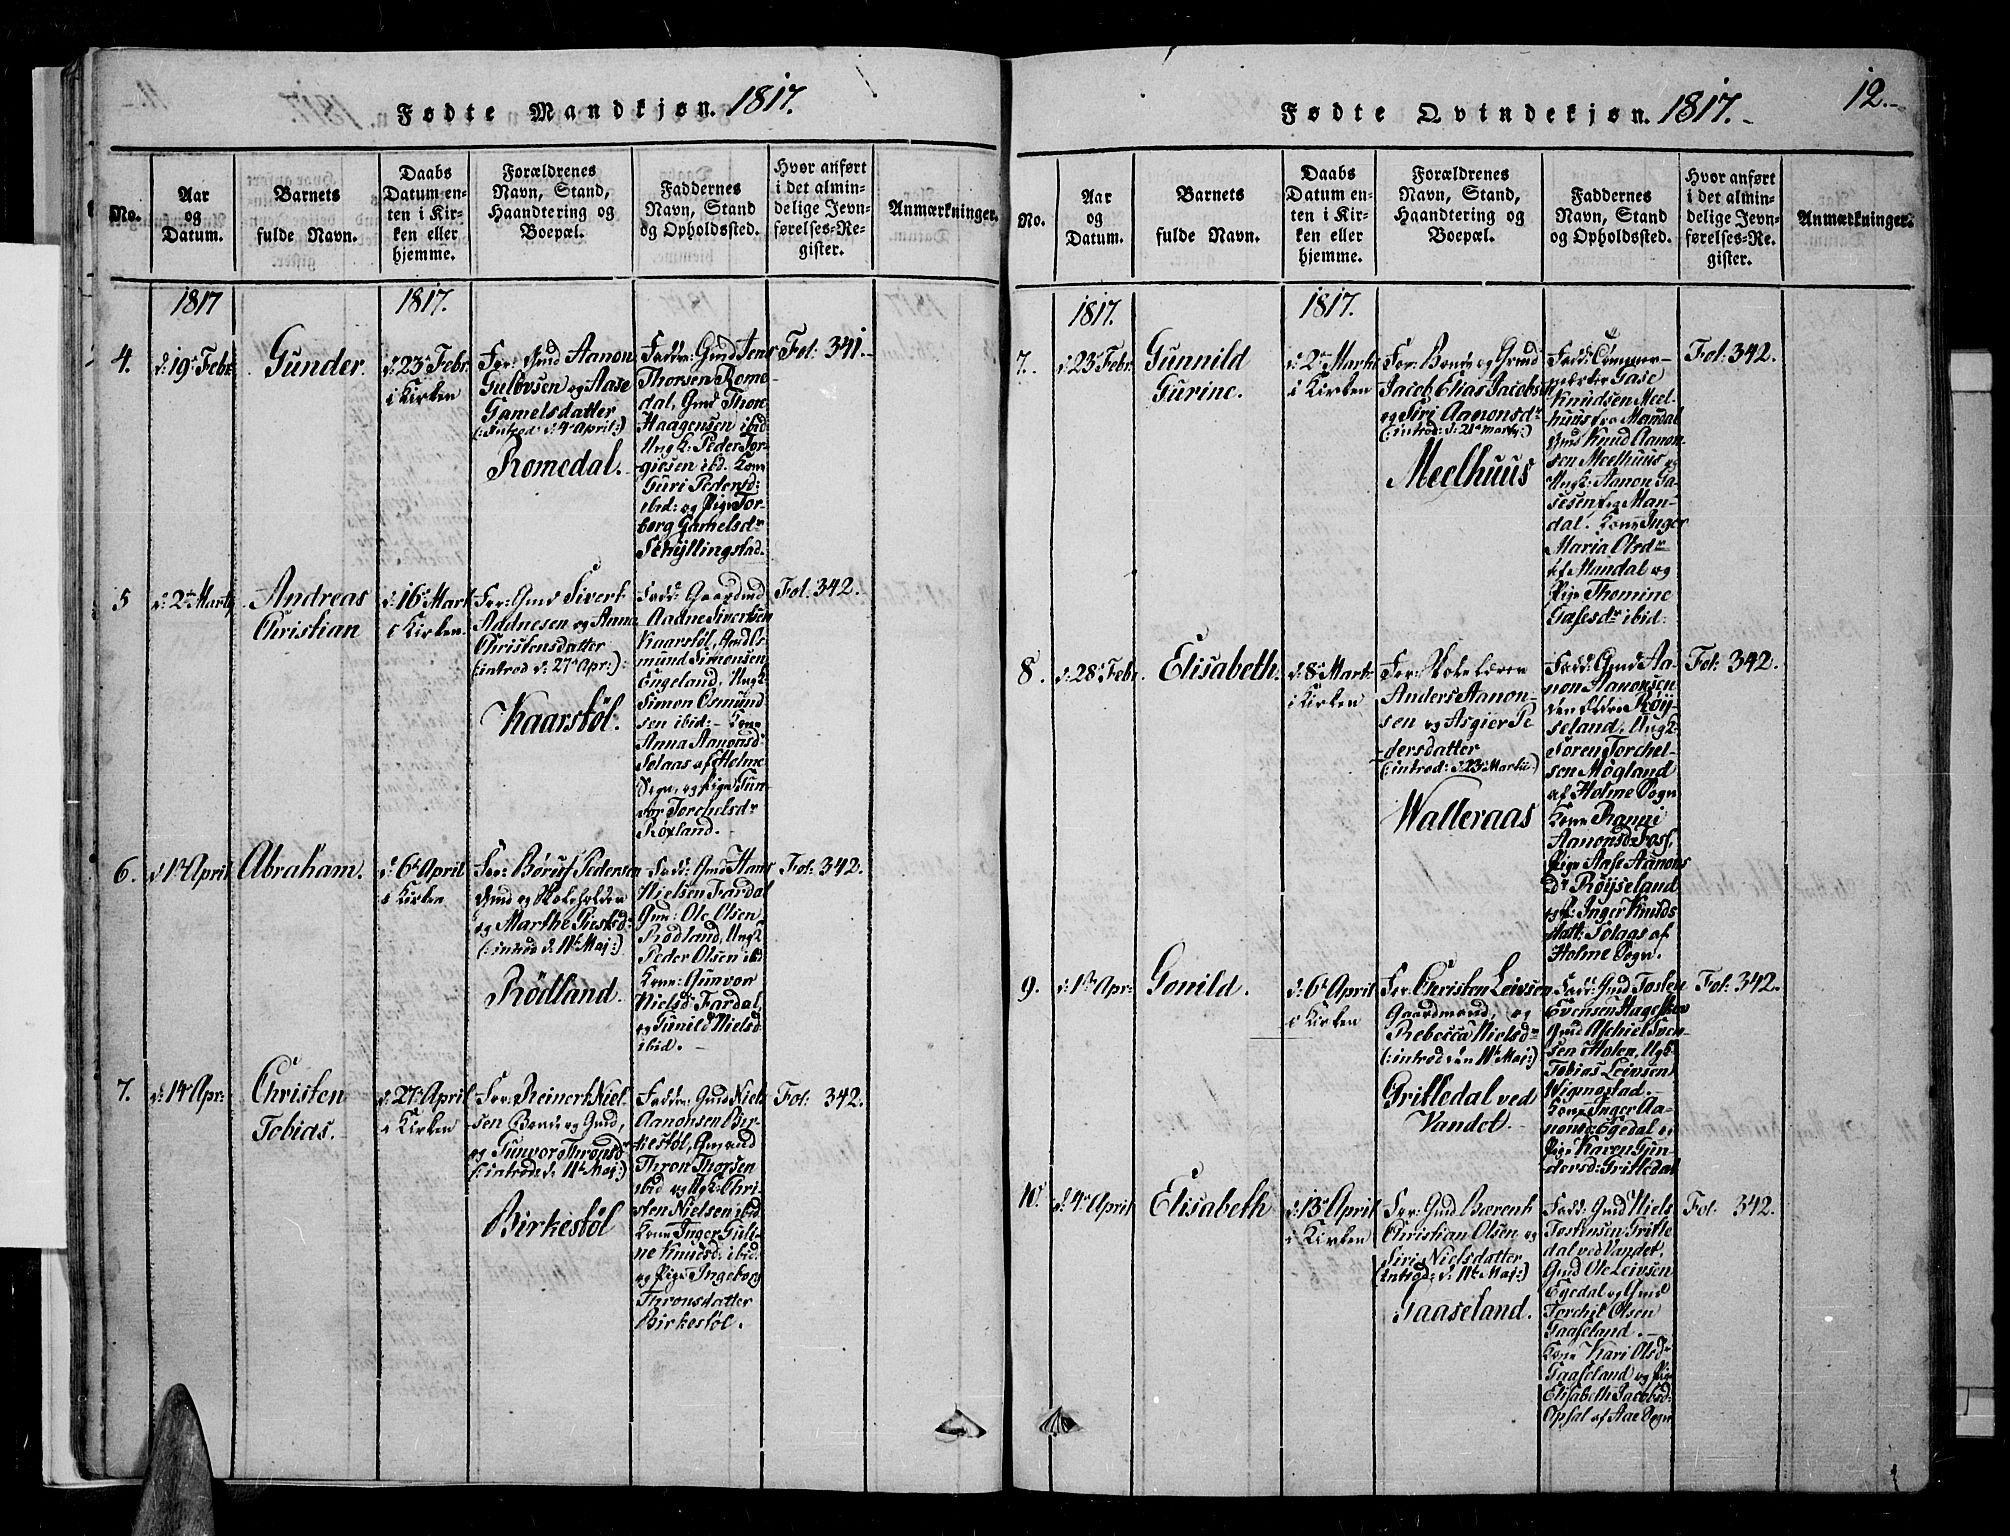 Fødte Mandkjøn. 1817.
No.
Aar
og
Datum.
Barnets
fulde Navn.
Daabs
Datum en-
ten i Kir-
ken eller
hjemme.
Forældrenes
Navn, Stand,
Haandtering og
Boepæl.
Faddernes
Navn, Stand
og Opholdssted.
Hvor anført
i det almin-
delige Jevn-
førelses-Re-
gister.
Anmærkninger.
1817
1817.
4.
d: 19 Febr
Gunder.
d: 23 Febr.
i Kirken
For: Gmd Aanon
Gulovsen og Aase
Gamelsdatter
(: introd: d: 4 April :)
Romedal.
Faddr: Gmd Jens
Thorsen Rome-
dal, Gmd Thon
Haagensen ibid
Ungk: Peder Tor-
giesen ibd. Kone
Guri Pedersd:
ibid: og Pige Tor-
borg Gamelsdr
Schyllingstad.
Fol: 341.
5
d: 2 Marty
Andreas
Christian
d: 16 Mart
i Kirken.
For: Gmd Sivert
Aadnesen og Anna
Christensdatter
(: introd d: 27 Apr :)
Kaarstøl.
Fadd: Gaardmd
Aadne Sivertsen
Kaarstøl, Gmd Os-
mund Simonsen
Engeland, Ungk
Simon Osmund
sen ibid:- Kone
Anna Aanonsd:
Solaas af Holme
Sogn, og Pige Gun-
vor Torchelsdr
Røxland.
Fol: 342.
6.
d: 1 April
Abraham.
d: 6 April
i Kirken
For: Børuf Pedersen
Gmd og Skoleholder
og Marthe Piersd:
(: introd d: 11te Maj :)
Rødland.
Fadd: Gmd Hans
Nielsen Fardal
Gmd: Ole Olsen
Rødland, Ungk
Peder Olsen ibd
Kone: Gunvor
Nielsd: Fardal,
og Gunild Nielsd
ibid.
Fol: 342.
7.
d: 14 Apr:
Christen
Tobias.
d: 27 April
i Kirken
For: Reinert Niel-
sen Bonde og Gmd,
og Gunvor Thronsdr
(: introd d: 11te Maj :)
Birkestøl
Faddr: Gmd Niels
Aanonsen Bir-
kestøl, Gmand
Thron Thorsen
ibid og Ungk: Chri-
sten Nielsen ibid
Kone Inger Guri-
ne Knudsd: ibid
og Pige Ingeborg
Thronsdatter
Birkestøl.
Fol: 342.
Fødte Qvindekjøn. 1817.
12.
No.
Aar
og
Datum.
Barnets
fulde Navn.
Daabs
Datum en-
ten i Kir-
ken eller
hjemme.
Forældrenes
Navn, Stand,
Haandtering og
Boepæl.
Faddernes
Navn, Stand
og Opholdssted.
Hvor anført
i det almin-
delige Jevn-
førelses-Re-
gister.
Anmærkninger.
1817.
1817.
7.
d: 23 Febr.
Gunnild
Gurine.
d: 2 Martii
i Kirken
For: Bonde og Gmd
Jacob Elias Jacobsen
og Siri Aanonsdr
(: introd: d: 21 Marty :)
Meelhuus
Fadd: Commer-
Gase
Knudsen Meel-
huus fra Mandal
Gmd Knud Aanon
sen Meelhuus og
Ungk: Aanon Ga-
sesen fra Man-
dal. Kone Inger
Maria Olsdr
af Mandal og
Pige Thomine
Gasesdr ibid:
Fol: 342.
8.
d: 28 Febr.
Elisabeth.
d: 8 Mart:
i Kirken
For: Skolelærer
Anders Aanon-
sen og Asgier Pe
dersdatter
(: introd: d: 23 Martii :)
Walleraas
Fadd: Gmd Aa-
non Aanonsen
den Eldre Røij-
seland, Ungk
Soren Torchel-
sen Møgland
af Holme Sogn
Kone Ranni
Aanonsd: Foss,
Pige Aase Aanons
dr Røyseland
og P: Inger Knuds
datt: Solaas af
Holme Sogn.
Fol: 342.
9.
d: 1 Apr:
Gonild.
d: 6 April
i Kirken
For: Christen Leivsen
Gaardmand, og
Rebecca Nielsdr
(: introd: den 11te Maj :)
Grittedal ved
Vandet.
Fadd: Gmd Tosten
Evensen Hageskov
Gmd Aschiel Sven-
sen Holen, Ungk
Tobias Leivsen
Wignestad.
Kone Inger Aa-
nonsd: Egedal og
Pige Karen Gun
dersd: Grittedal
Fol: 342.
10.
d: 4 April
Elisabeth
d: 13 April
i Kirken
For: Gmd Bærent
Christian Olsen og
Siri Nielsdatter
(: introd: d: 11te Maj :)
Gaaseland.
Fadd: Gmd Niels
Tostensen Gritte
dal ved Vandet,
Gmd Ole Leivsen
Egedal og Gmd
Torchil Olsen
Gaaseland.
Kone Kari Olsdr
Gaaseland og Pige
Elisabeth Jacobsd:
Opsal af Aae Sogn
Fol: 342.